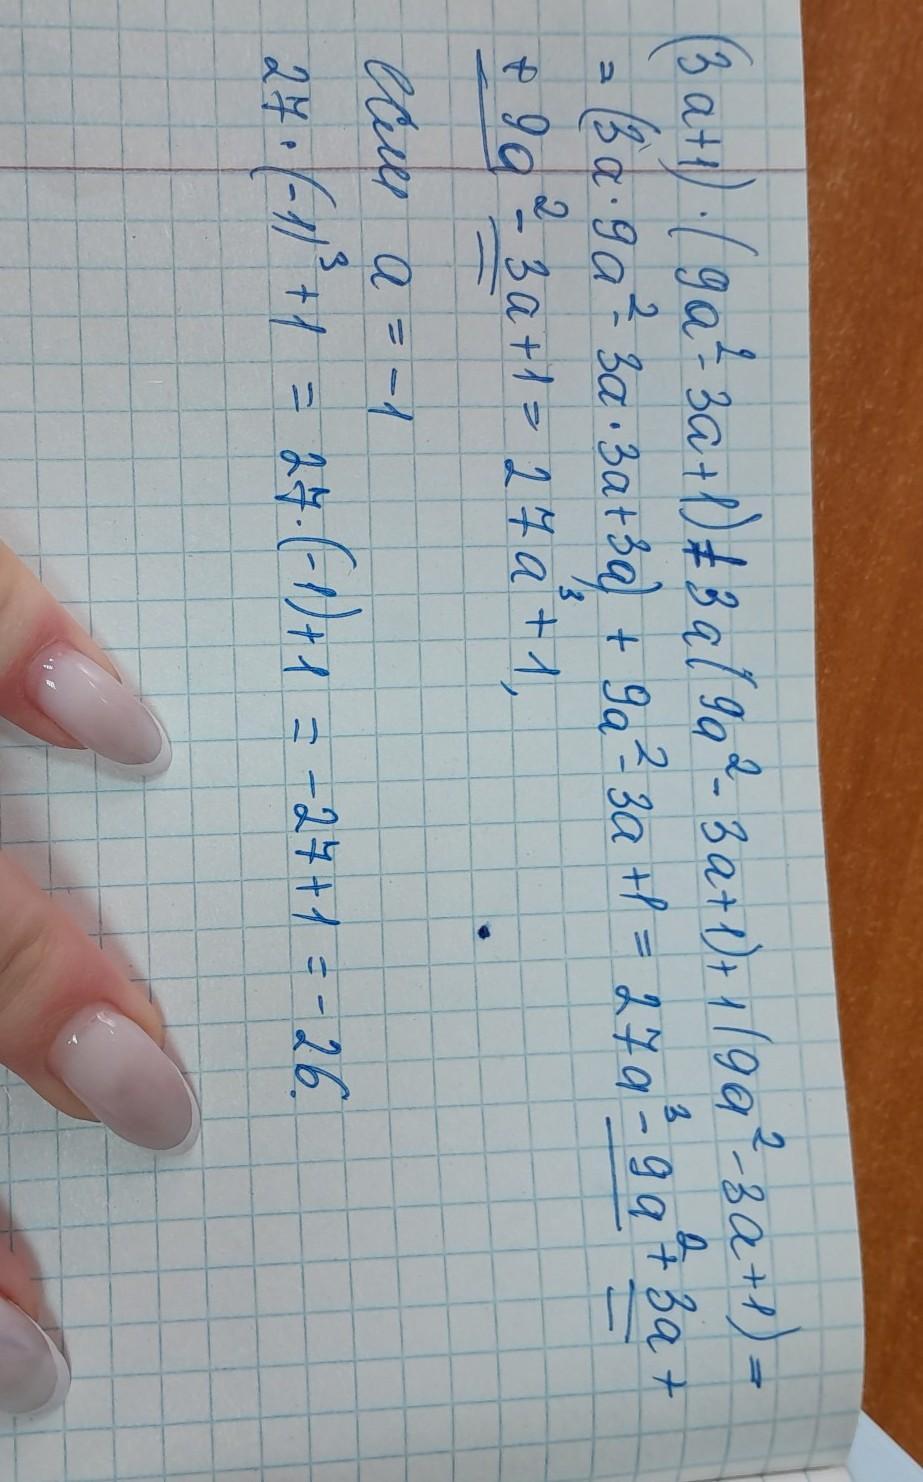 (3a+1)·(9a²-3a+1)=3a(9a²-3a+1)+1(9a²-3a+1)=
=(3a·9a²-3a·3a+3a)+9a²-3a+1=27a³-9a²+3a+
+9a²-3a+1=27a³+1,
Если a=-1
27·(-1)³+1=27·(-1)+1=-27+1=-26.